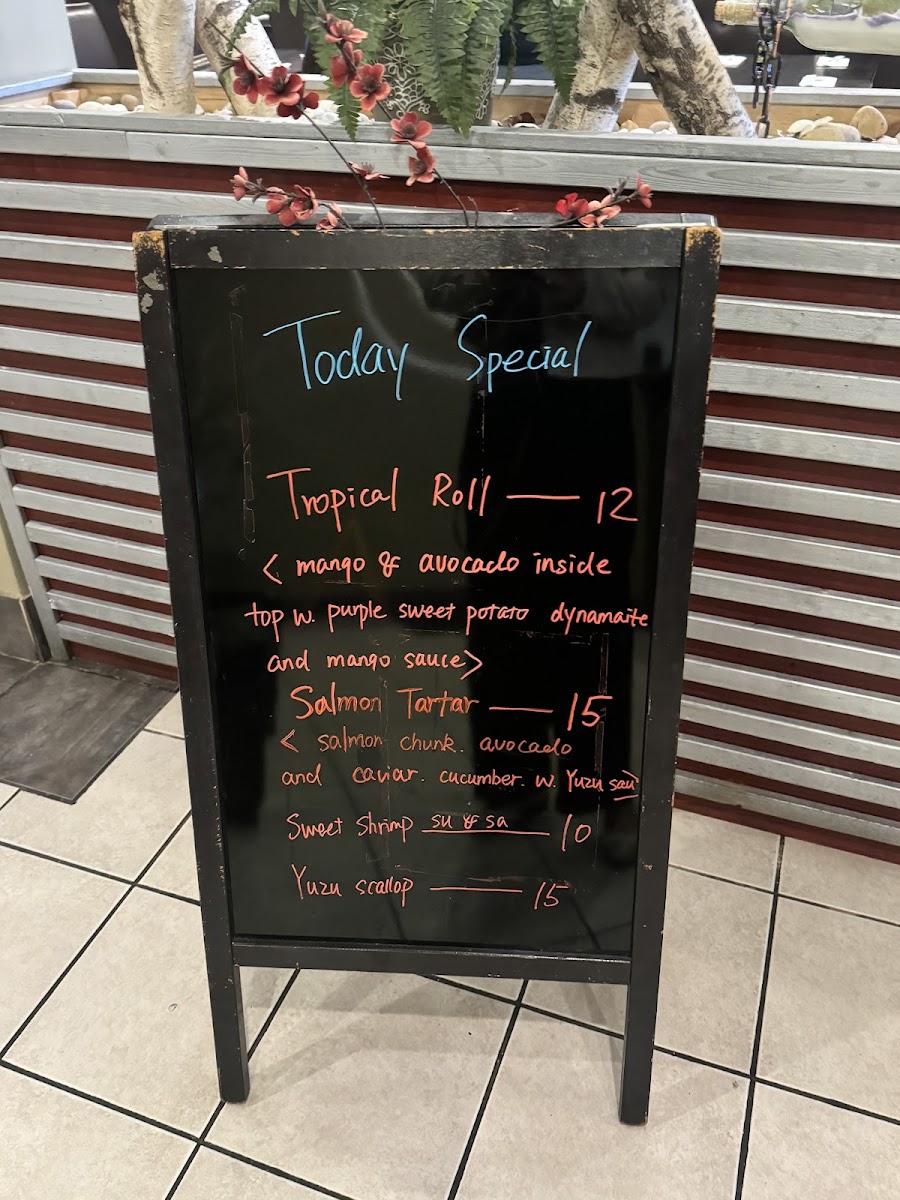 Today Special
Tropical Roll — 12
< mango & avocado inside
top w. purple sweet potato dynamaite
and mango sauce>
Salmon Tartar — 15
< salmon chunk. avocado
and caviar. cucumber. w. Yuzu sau>
Sweet shrimp su & sa — 10
Yuzu scallop — 15